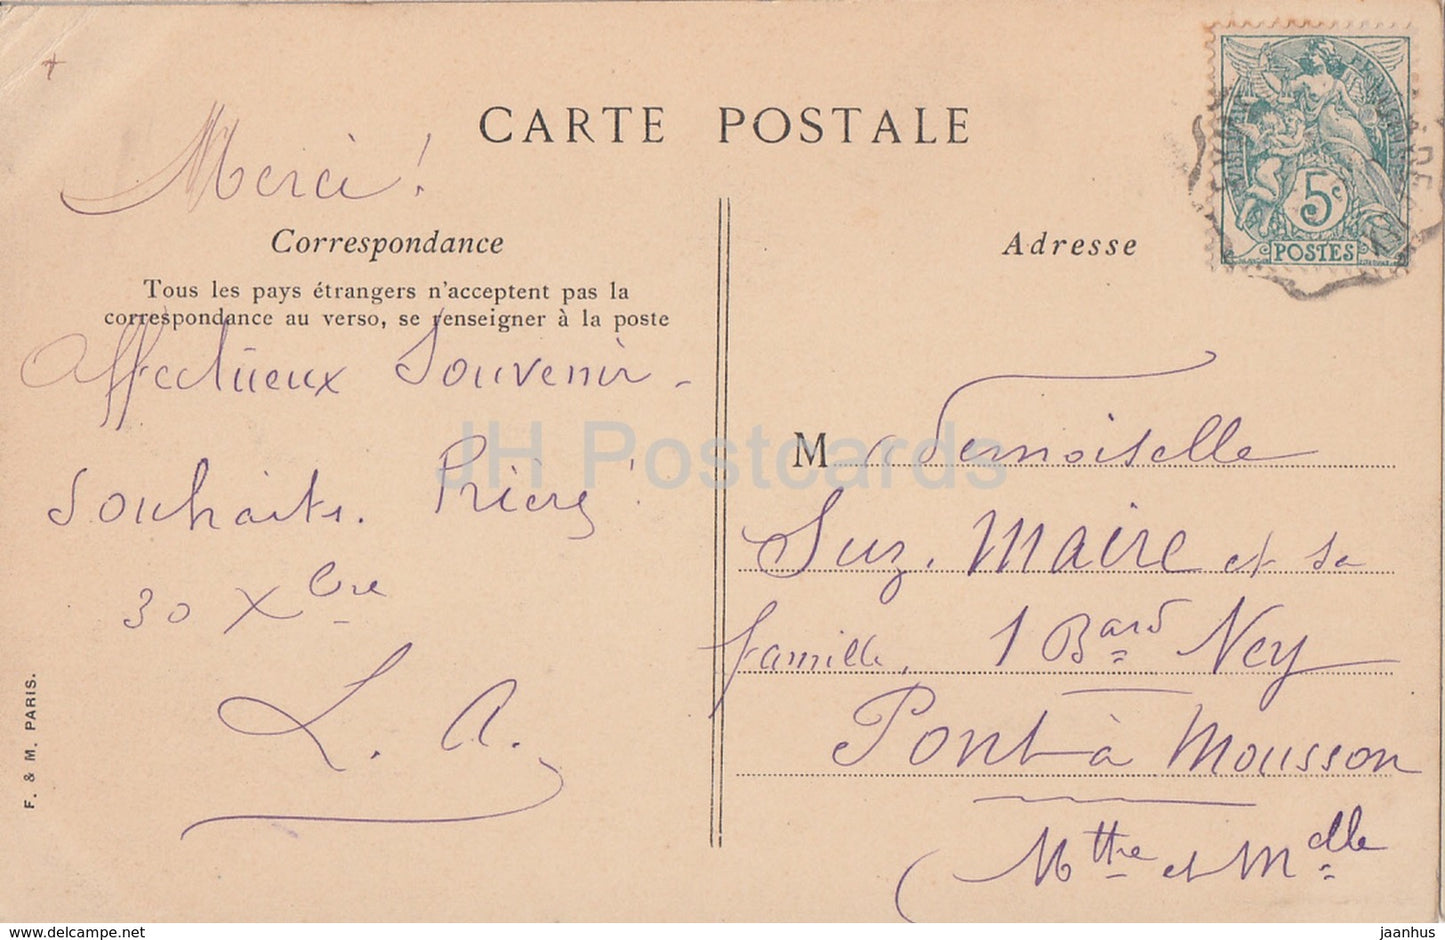 CARTE POSTALE
Merci !
Correspondance
Tous les pays étrangers n'acceptent pas la
correspondance au verso, se renseigner à la poste
Affectueux Souvenir -
Souhaits. Prière !
30 Xbre
L. A.
F. & M. PARIS.
Adresse
5c
POSTES
Mademoiselle
Suz. Maire et sa
famille, 1 Bard Ney
Pont-à Mousson
Mtthe et Mdlle
JH Postcards
delcampe.net
jaanhus